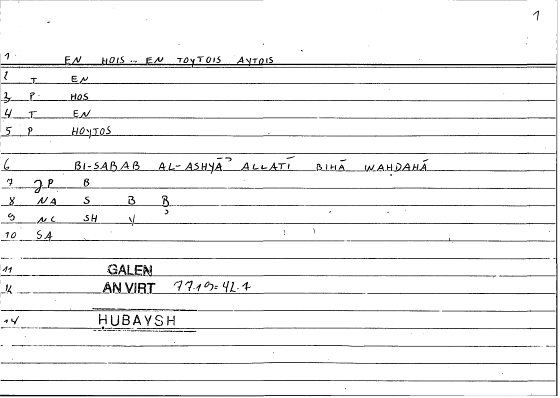 1
1 EN HOIS... EN TOYTOIS AYTOIS
2 T EN
3 P HOS
4 T EN
5 P HOYTOS
6 BI-SABAB AL-ASHYĀʾ ALLATĪ BIHĀ WAḤDAHĀ
7 JP B
8 NA S B B
9 NC SH Y
10 SA
11 GALEN
12 AN VIRT
14 ḤUBAYSH